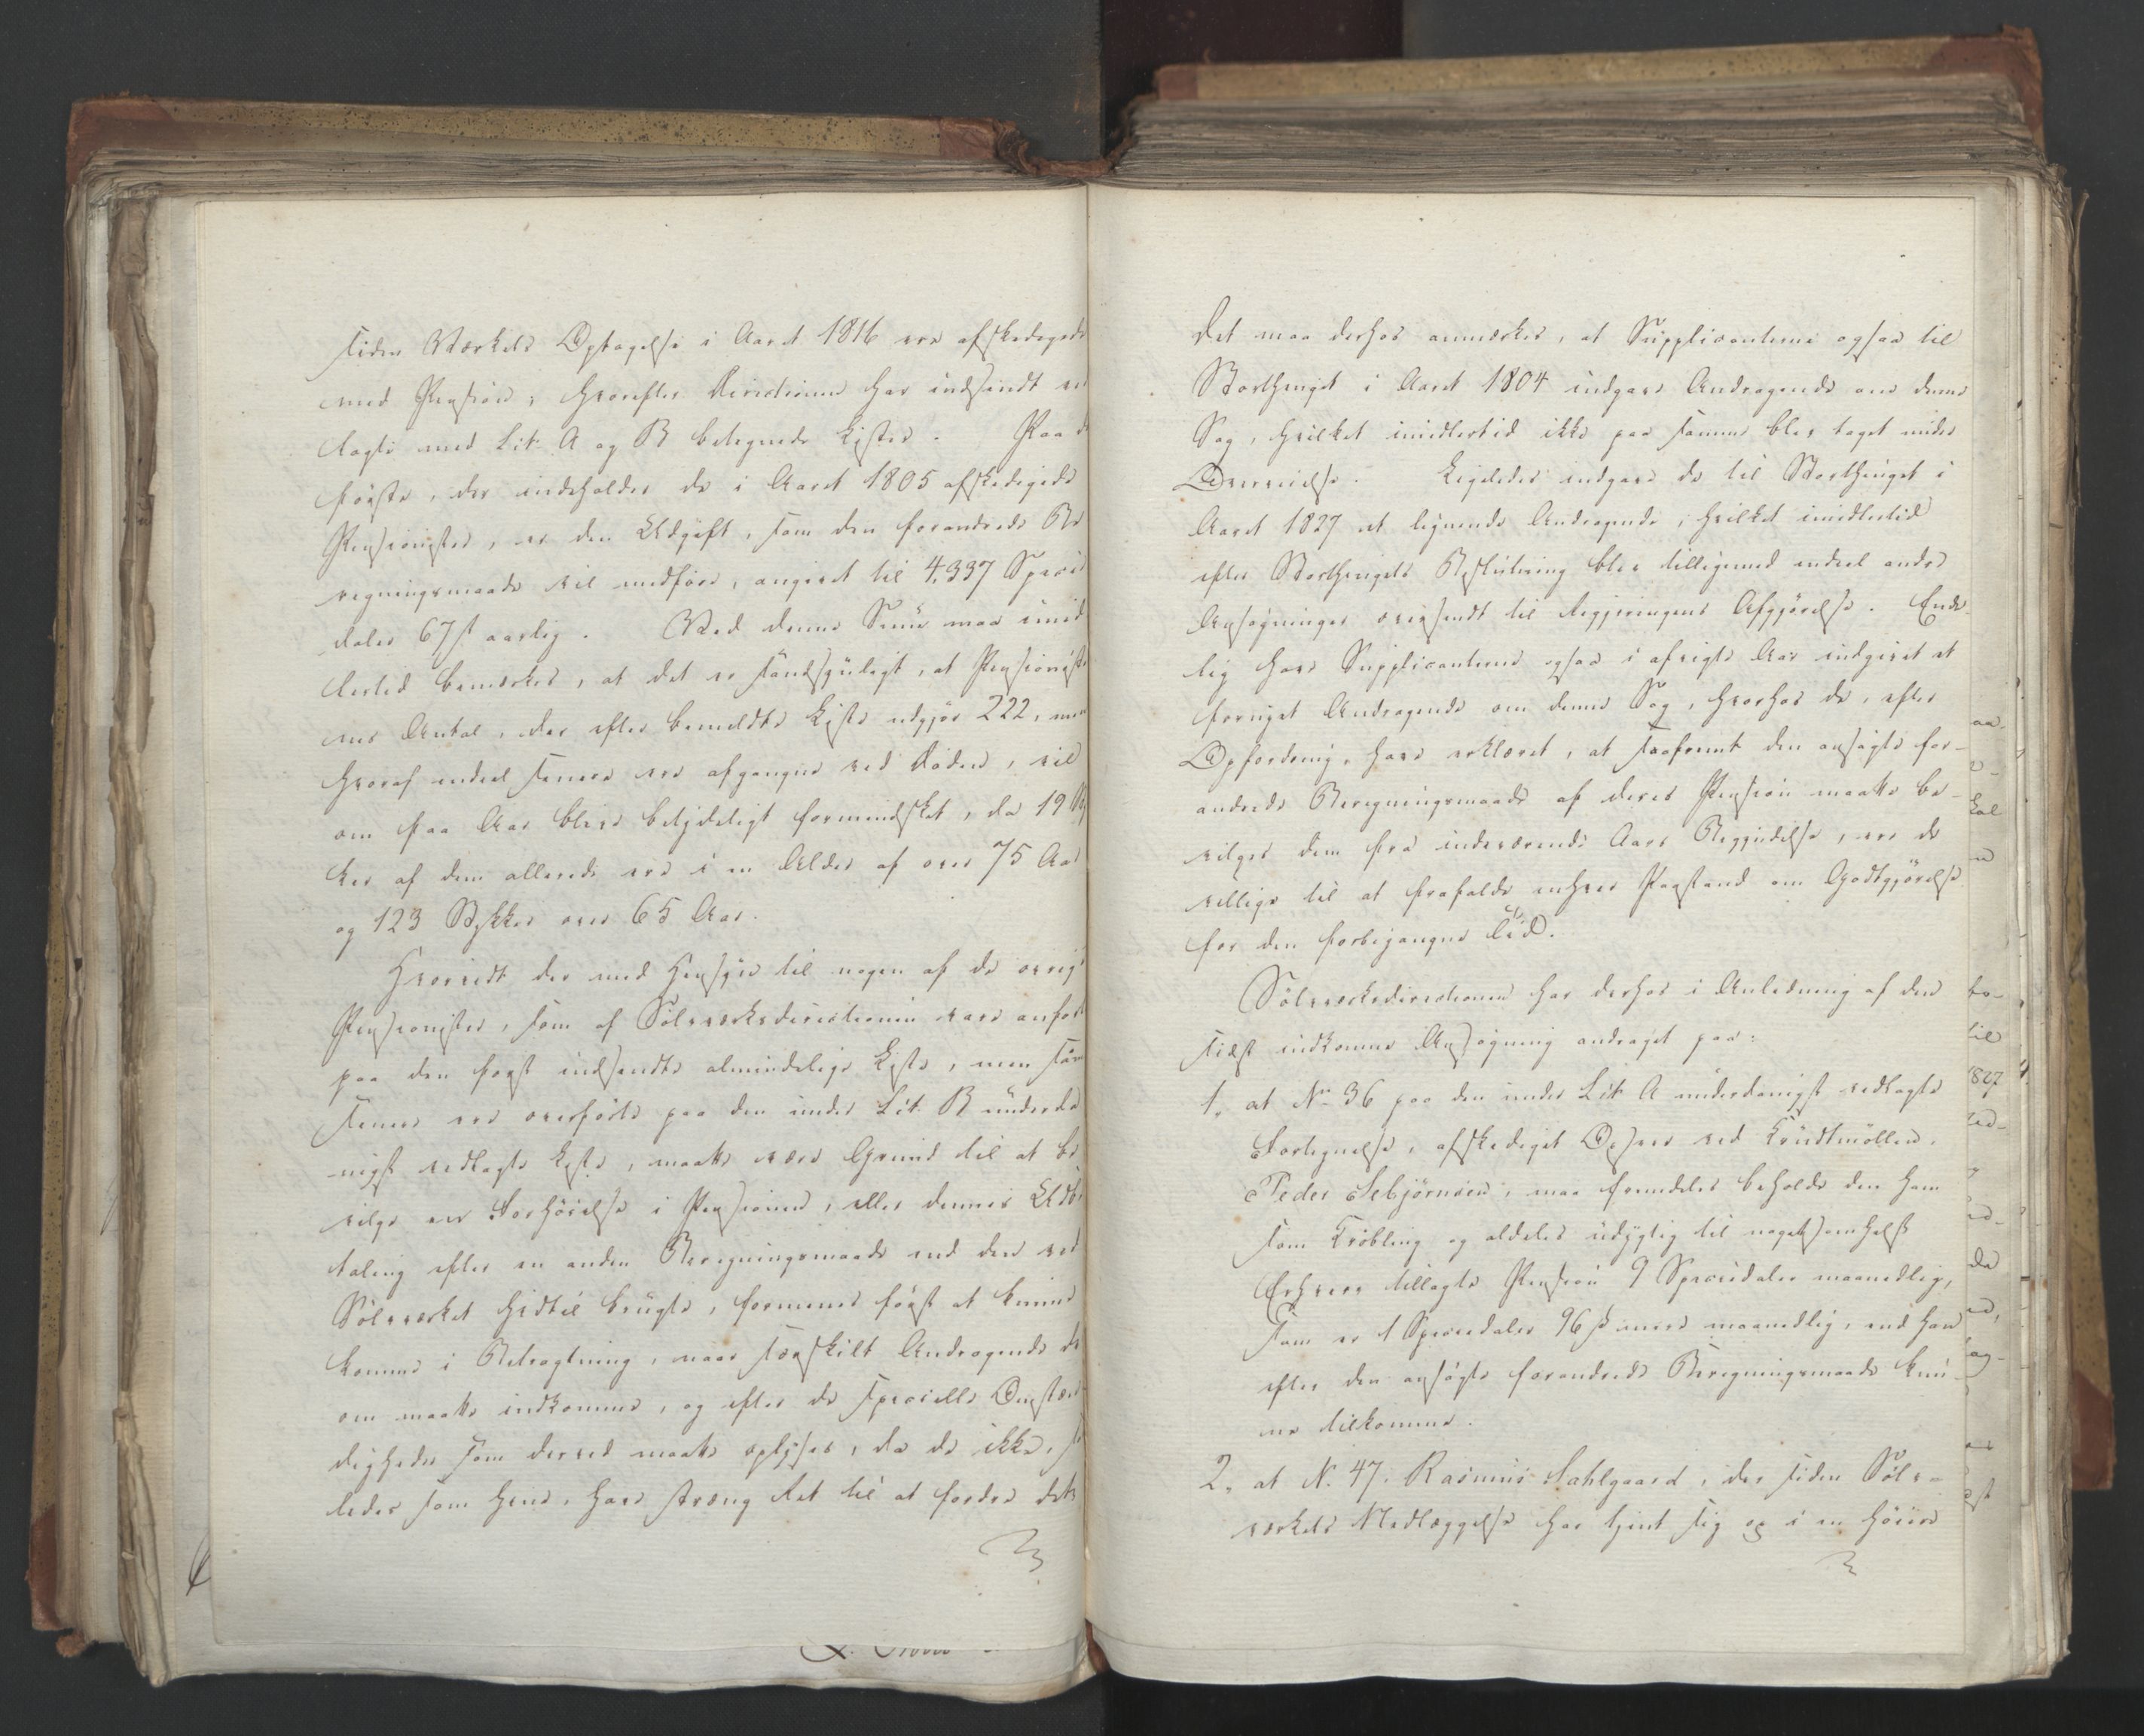 siden Værkets Optagelse i Aaret 1816 ere afskedigede
med Pension, hvorefter Directionen har indsendt ved
lagte med Lit. A og B betegnede Lister. Paa d
første, der indeholder de i Aaret 1805 afskedigede
Pensionister, er den Udgift, som den forandrede Be
regningsmaade vil medføre, angivet til 4,337 Specie
daler 67 ß aarlig. Ved denne Sum maa imid
lertid bemærkes, at det er sandsynligt, at Pensioniste
nes Antal, der efter bemeldte Liste udgjør 222, men
hvoraf endeel senere ere afgangne ved Døden, vil
om faa Aar blive betydeligt formindsket, da 19 Styk
ker af dem allerede ere i en Alder af over 75 Aar
og 123 Stykker over 65 Aar.
Hvorvidt der med Hensyn til nogen af de øvrige
Pensionister, som af Sølvværksdirectionen vare anført
paa den først indsendte almindelige Liste, men som
senere ere overførte paa den under Lit. B underda
nigst vedlagte Liste, maatte være Grund til at be
vilge en Forhøielse i Pensionen, eller dennes Udbe
taling efter en anden Beregningsmaade end den ved
Sølvværket hidtil brugte, formenes først at kunne
komme i Betragtning, naar særskilt Andragende der
om maatte indkomme, og efter de specielle Omstæn
digheder som derved maatte oplyses, da de ikke, saa
ledes som hine, have stræng Ret til at fordre dette
Det maa derhos anmærkes, at Supplicanterne ogsaa til
Storthinget i Aaret 1804 indgave Andragende om denne
Sag, hvilket imidlertid ikke paa samme blev taget under
Overveielse. Ligeledes indgave de til Storthinget i
Aaret 1827 et lignende Andragende, hvilket imidlertid
efter Storthingets Beslutning blev tilligemed endeel andre
Ansøgninger oversendt til Regjeringens Afgjørelse. Ende-
lig have Supplicanterne ogsaa i afvigte Aar indgivet et
fornyet Andragende om denne Sag, hvorhos de, efter
Opfordring, have erklæret, at saafremt den ansøgte for-
andrede Beregningsmaade af deres Pension maatte be-
vilges dem fra indeværende Aars Begyndelse, ere de
villige til at frafalde enhver Paastand om Godtgjørelse
for den forbigangne Tid.
Sølvværksdirectionen har derhos i Anledning af den
sidst indkomne Ansøgning andraget paa:
1, at No 36 paa den under Lit. A underdanigst vedlagte
Fortegnelse, afskediget Opseer ved Krudtmøllen,
Peder Sebjörnsen, maa fremdeles beholde den ham
som Krøbling og aldeles udygtig til nogetsomhelst
Erhverv tillagte Pension 9 Speciedaler maanedlig,
som er 1 Speciedaler 96 ß mere maanedlig, end han
efter den ansøgte forandrede Beregningsmaade kun-
ne tilkomme.
2, at N. 47. Rasmus Sahlgaard, der siden Sølv-
værkets Nedlæggelse har tjent sig op i en høiere